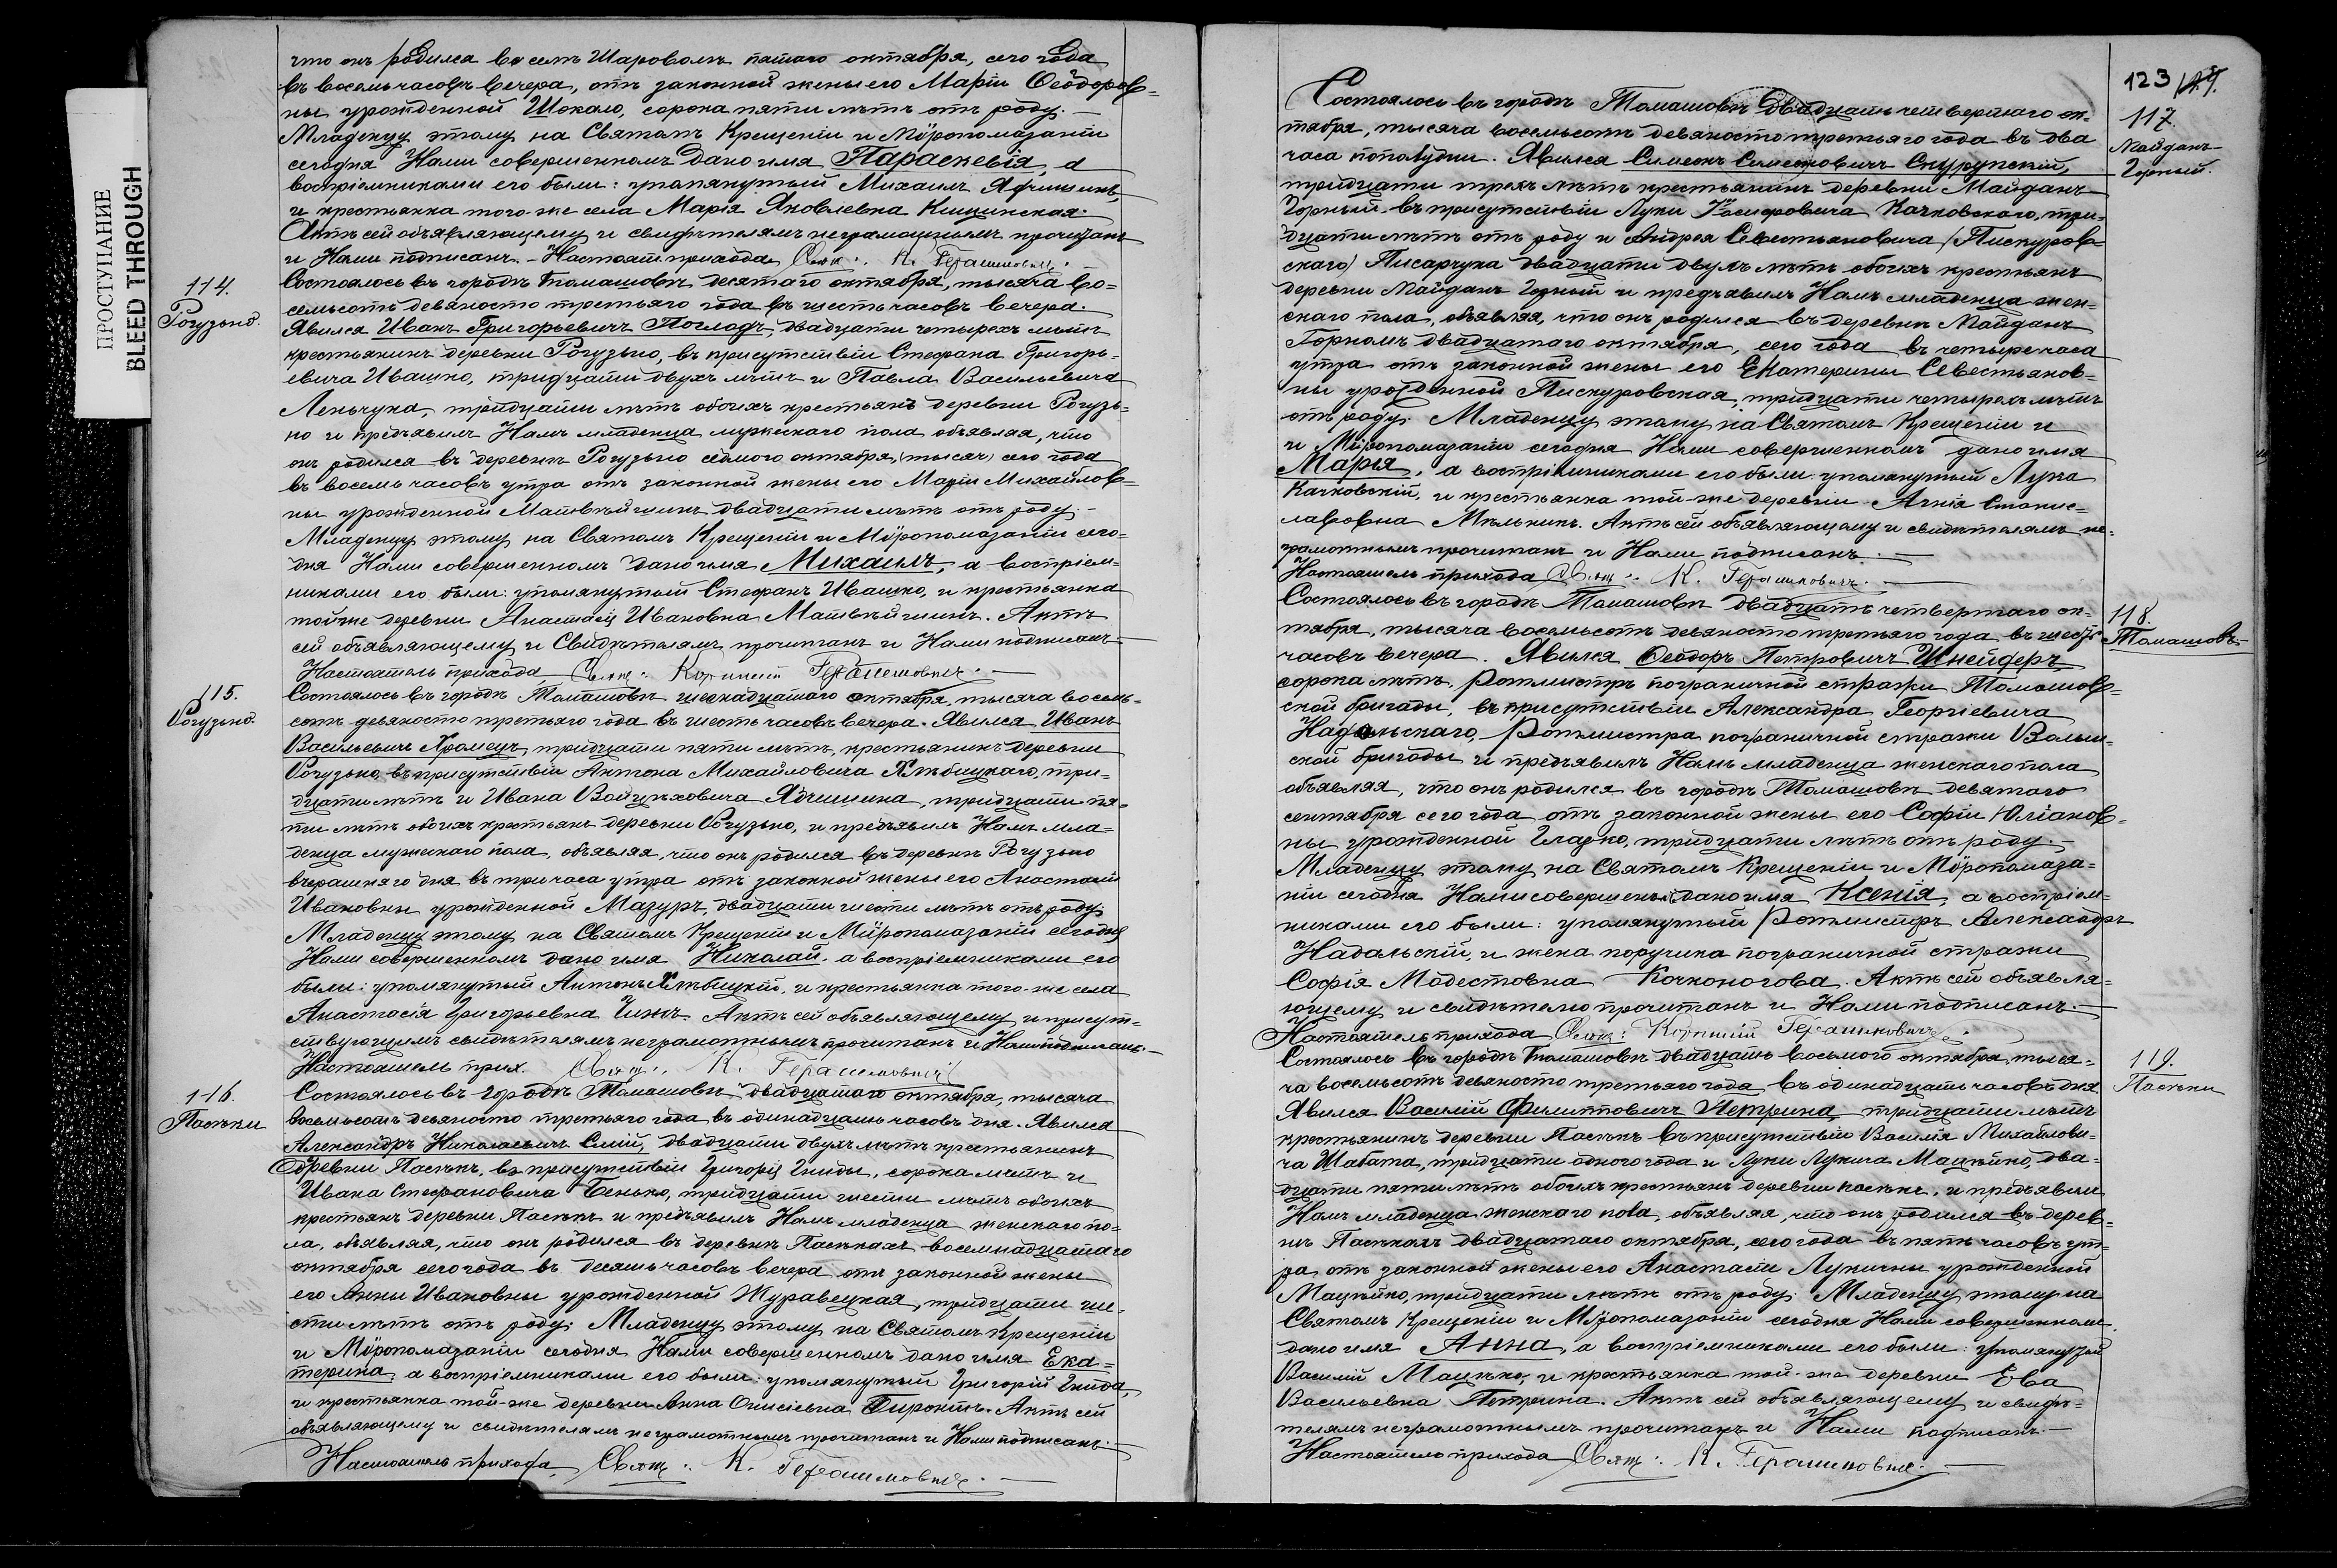 ПРОСТУПАНИЕ
BLEED THROUGH
что онъ родился въ селѣ Шаровольѣ пятаго октября, сего года
въ восемь часовъ вечера, отъ законной жены его Маріи Ѳеодоров=
ны урожденной Шокало, сорока пяти лѣтъ отъ роду.
Младенцу этому на Святомъ Крещеніи и Мѵропомазаніи
сегодня Нами совершенномъ дано имя Параскевія, а
воспріемниками его были: упомянутый Михаилъ
и крестьянка того-же села Марія Яковлевна
Актъ сей объявляющему и свидѣтелямъ неграмотнымъ прочитанъ
и Нами подписанъ. – Настоят. прихода Свящ: К. Герасимовичъ.
114.
Рогузьно.
Состоялось въ городѣ Томашовѣ десятаго октября, тысяча во=
семьсотъ девяносто третьяго года въ шесть часовъ вечера.
Явился Иванъ Григорьевичъ Погладъ, двадцати четырехъ лѣтъ
крестьянинъ деревни Рогузьно, въ присутствіи Стефана Григорь=
евича Ивашко, тридцати двухъ лѣтъ и Павла Васильевича
Леньчука, тридцати лѣтъ обоихъ крестьянъ деревни Рогузь=
но и предъявилъ Намъ младенца мужескаго пола объявляя, что
онъ родился въ деревнѣ Рогузьно седмого октября, (тысяч) сего года
въ восемь часовъ утра отъ законной жены его Маріи Михайлов=
ны урожденной Матвѣйшинъ двадцати лѣтъ отъ роду.–
Младенцу этому на Святомъ Крещеніи и Мѵропомазаніи сего=
дня Нами совершенномъ дано имя Михаилъ, а воспріем=
никами его были: упомянутый Стефанъ Ивашко, и крестьянка
той же деревни Анастасія Ивановна Матвѣйшинъ. Актъ
сей объявляющему и Свидѣтелямъ прочитанъ и Нами подписанъ
Настоятель прихода Свящ: Корнилій Герасимовичъ.
115.
Рогузьно.
Состоялось въ городѣ Томашовѣ шеснадцатаго октября, тысяча восемь=
сотъ девяносто третьяго года въ шесть часовъ вечера. Явился Иванъ
Васильевичъ Хромецъ, тридцати пяти лѣтъ, крестьянинъ деревни
Рогузьно, въ присутствіи Антона Михайловича Хлѣбицкаго, три=
дцати лѣтъ и Ивана Войцѣховича Ядчишина, тридцати пя=
ти лѣтъ обоихъ крестьянъ деревни Рогузьно, и предъявилъ Намъ мла=
денца мужескаго пола, объявляя, что онъ родился въ деревнѣ Рогузьно
вчерашняго дня въ три часа утра отъ законной жены его Анастасіи
Ивановны урожденной Мазуръ, двадцати шести лѣтъ отъ роду.
Младенцу этому на Святомъ Крещеніи и Мѵропомазаніи сегодня
Нами совершенномъ дано имя Николай, а воспріемниками его
были: упомянутый Антонъ Хлѣбицкій, и крестьянка того-же села
Анастасія Григорьевна Чижъ. Актъ сей объявляющему и присут=
ствующимъ свидѣтелямъ неграмотнымъ прочитанъ и Нами подписанъ.–
Настоятель прих. Свящ: К. Герасимовичъ
116.
Пасѣки
Состоялось въ городѣ Томашовѣ двадцатаго октября, тысяча
восемьсотъ девяносто третьяго года въ одинадцать часовъ дня. Явился
Александръ Николаевичъ Смій, двадцати двухъ лѣтъ крестьянинъ
деревни Пасѣкъ, въ присутствіи Григорія Гниды, сорока лѣтъ и
Ивана Стефановича Бенько, тридцати шести лѣтъ обоихъ
крестьянъ деревни Пасѣкъ и предъявилъ Намъ младенца женскаго по=
ла, объявляя, что онъ родился въ деревнѣ Пасѣкахъ восемнадцатаго
октября сего года въ десять часовъ вечера отъ законной жены
его Анны Ивановны урожденной Журавецкая, тридцати ше=
сти лѣтъ отъ роду. Младенцу этому на Святомъ Крещеніи
и Мѵропомазаніи сегодня Нами совершенномъ дано имя Ека=
терина, а воспріемниками его были: упомянутый Григорій Гнида,
и крестьянка той-же деревни Анна Онисіевна Актъ сей
объявляющему и свидѣтелямъ неграмотнымъ прочитанъ и Нами подписанъ.–
Настоятель прихода, Свящ: К. Герасимовичъ.–
123
117.
Майданъ-
Горный.
Состоялось въ городѣ Томашовѣ двадцать четвертаго ок=
тября, тысяча восемьсотъ девяносто третьяго года въ два
часа пополудни. Явился Симеонъ Симеоновичъ Скурупскій,
тридцати трехъ лѣтъ крестьянинъ деревни Майданъ
Горный, въ присутствіи Луки Іосифовича Качковскаго, три=
дцати лѣтъ отъ роду и Андрея Севестьяновича (Пискуров=
скаго) Писарчука двадцати двухъ лѣтъ обоихъ крестьянъ
деревни Майданъ Горный и предъявилъ Намъ младенца жен=
скаго пола, объявляя, что онъ родился въ деревнѣ Майданѣ
Горномъ двадцатаго октября, сего года въ четыре часа
утра отъ законной жены его Екатерины Севестьянов=
ны урожденной Пискуровская, тридцати четырехъ лѣтъ
отъ роду. Младенцу этому на Святомъ Крещеніи и
и Мѵропомазаніи сегодня Нами совершенномъ дано имя
Марія, а воспріемниками его были: упомянутый Лука
Качковскій, и крестьянка той-же деревни Агнія Станис=
лавовна Мѣльникъ. Актъ сей объявляющему и свидѣтелямъ не=
грамотнымъ прочитанъ и Нами подписанъ.–
Настоятель прихода Свящ: К. Герасимовичъ.–
118.
Томашовъ
Состоялось въ городѣ Томашовѣ двадцать четвертаго ок=
тября, тысяча восемьсотъ девяносто третьяго года въ шесть
часовъ вечера. Явился Ѳеодоръ Петровичъ Шнейдеръ
сорока лѣтъ, Ротмистръ пограничной стражи Томашов=
ской бригады, въ присутствіи Александра Георгіевича
Надальскаго, Ротмистра пограничной стражи Волын=
ской бригады и предъявилъ Намъ младенца женскаго пола
объявляя, что онъ родился въ городѣ Томашовѣ девятаго
сентября сего года отъ законной жены его Софіи Юліанов=
ны урожденной Гладко, тридцати лѣтъ отъ роду.–
Младенцу этому на Святомъ Крещеніи и Мѵропомаза=
ніи сегодня Нами совершенъ дано имя Ксенія, а воспріем=
никами его были: упомянутый Ротмистръ Александръ
Надальскій, и жена поручика пограничной стражи
Софія Модестовна Кочконогова. Актъ сей объявля=
ющему и свидѣтелю прочитанъ и Нами подписанъ.–
Настоятель прихода Свящ: Корнилій Герасимовичъ.
119.
Пасѣки
Состоялось въ городѣ Томашовѣ двадцать восьмого октября, тыся=
ча восемьсотъ девяносто третьяго года въ одинадцать часовъ дня.
Явился Василій Филипповичъ Петрина, тридцати лѣтъ
крестьянинъ деревни Пасѣкъ въ присутствіи Василія Михайлови=
ча Шабата, тридцати одного года и Луки Лукича Мацѣйко, два=
дцати пяти лѣтъ обоихъ крестьянъ деревни пасѣкъ, и предъявилъ
Намъ младенца женскаго пола, объявляя, что онъ родился въ дерев=
нѣ Пасѣкахъ двадцатаго октября, сего года въ пять часовъ ут=
ра, отъ законной жены его Анастасіи Лукичны урожденной
Мацѣйко, тридцати лѣтъ отъ роду. Младенцу этому на
Святомъ Крещеніи и Мѵропомазаніи сегодня Нами совершенномъ
дано имя Анна, а воспріемниками его были: упомянутый
Василій Мацѣко, и крестьянка той-же деревни Ева
Васильевна Петрина. Актъ сей объявляющему и свидѣ=
телямъ неграмотнымъ прочитанъ и Нами подписанъ.–
Настоятель прихода Свящ: К. Герасимовичъ.–